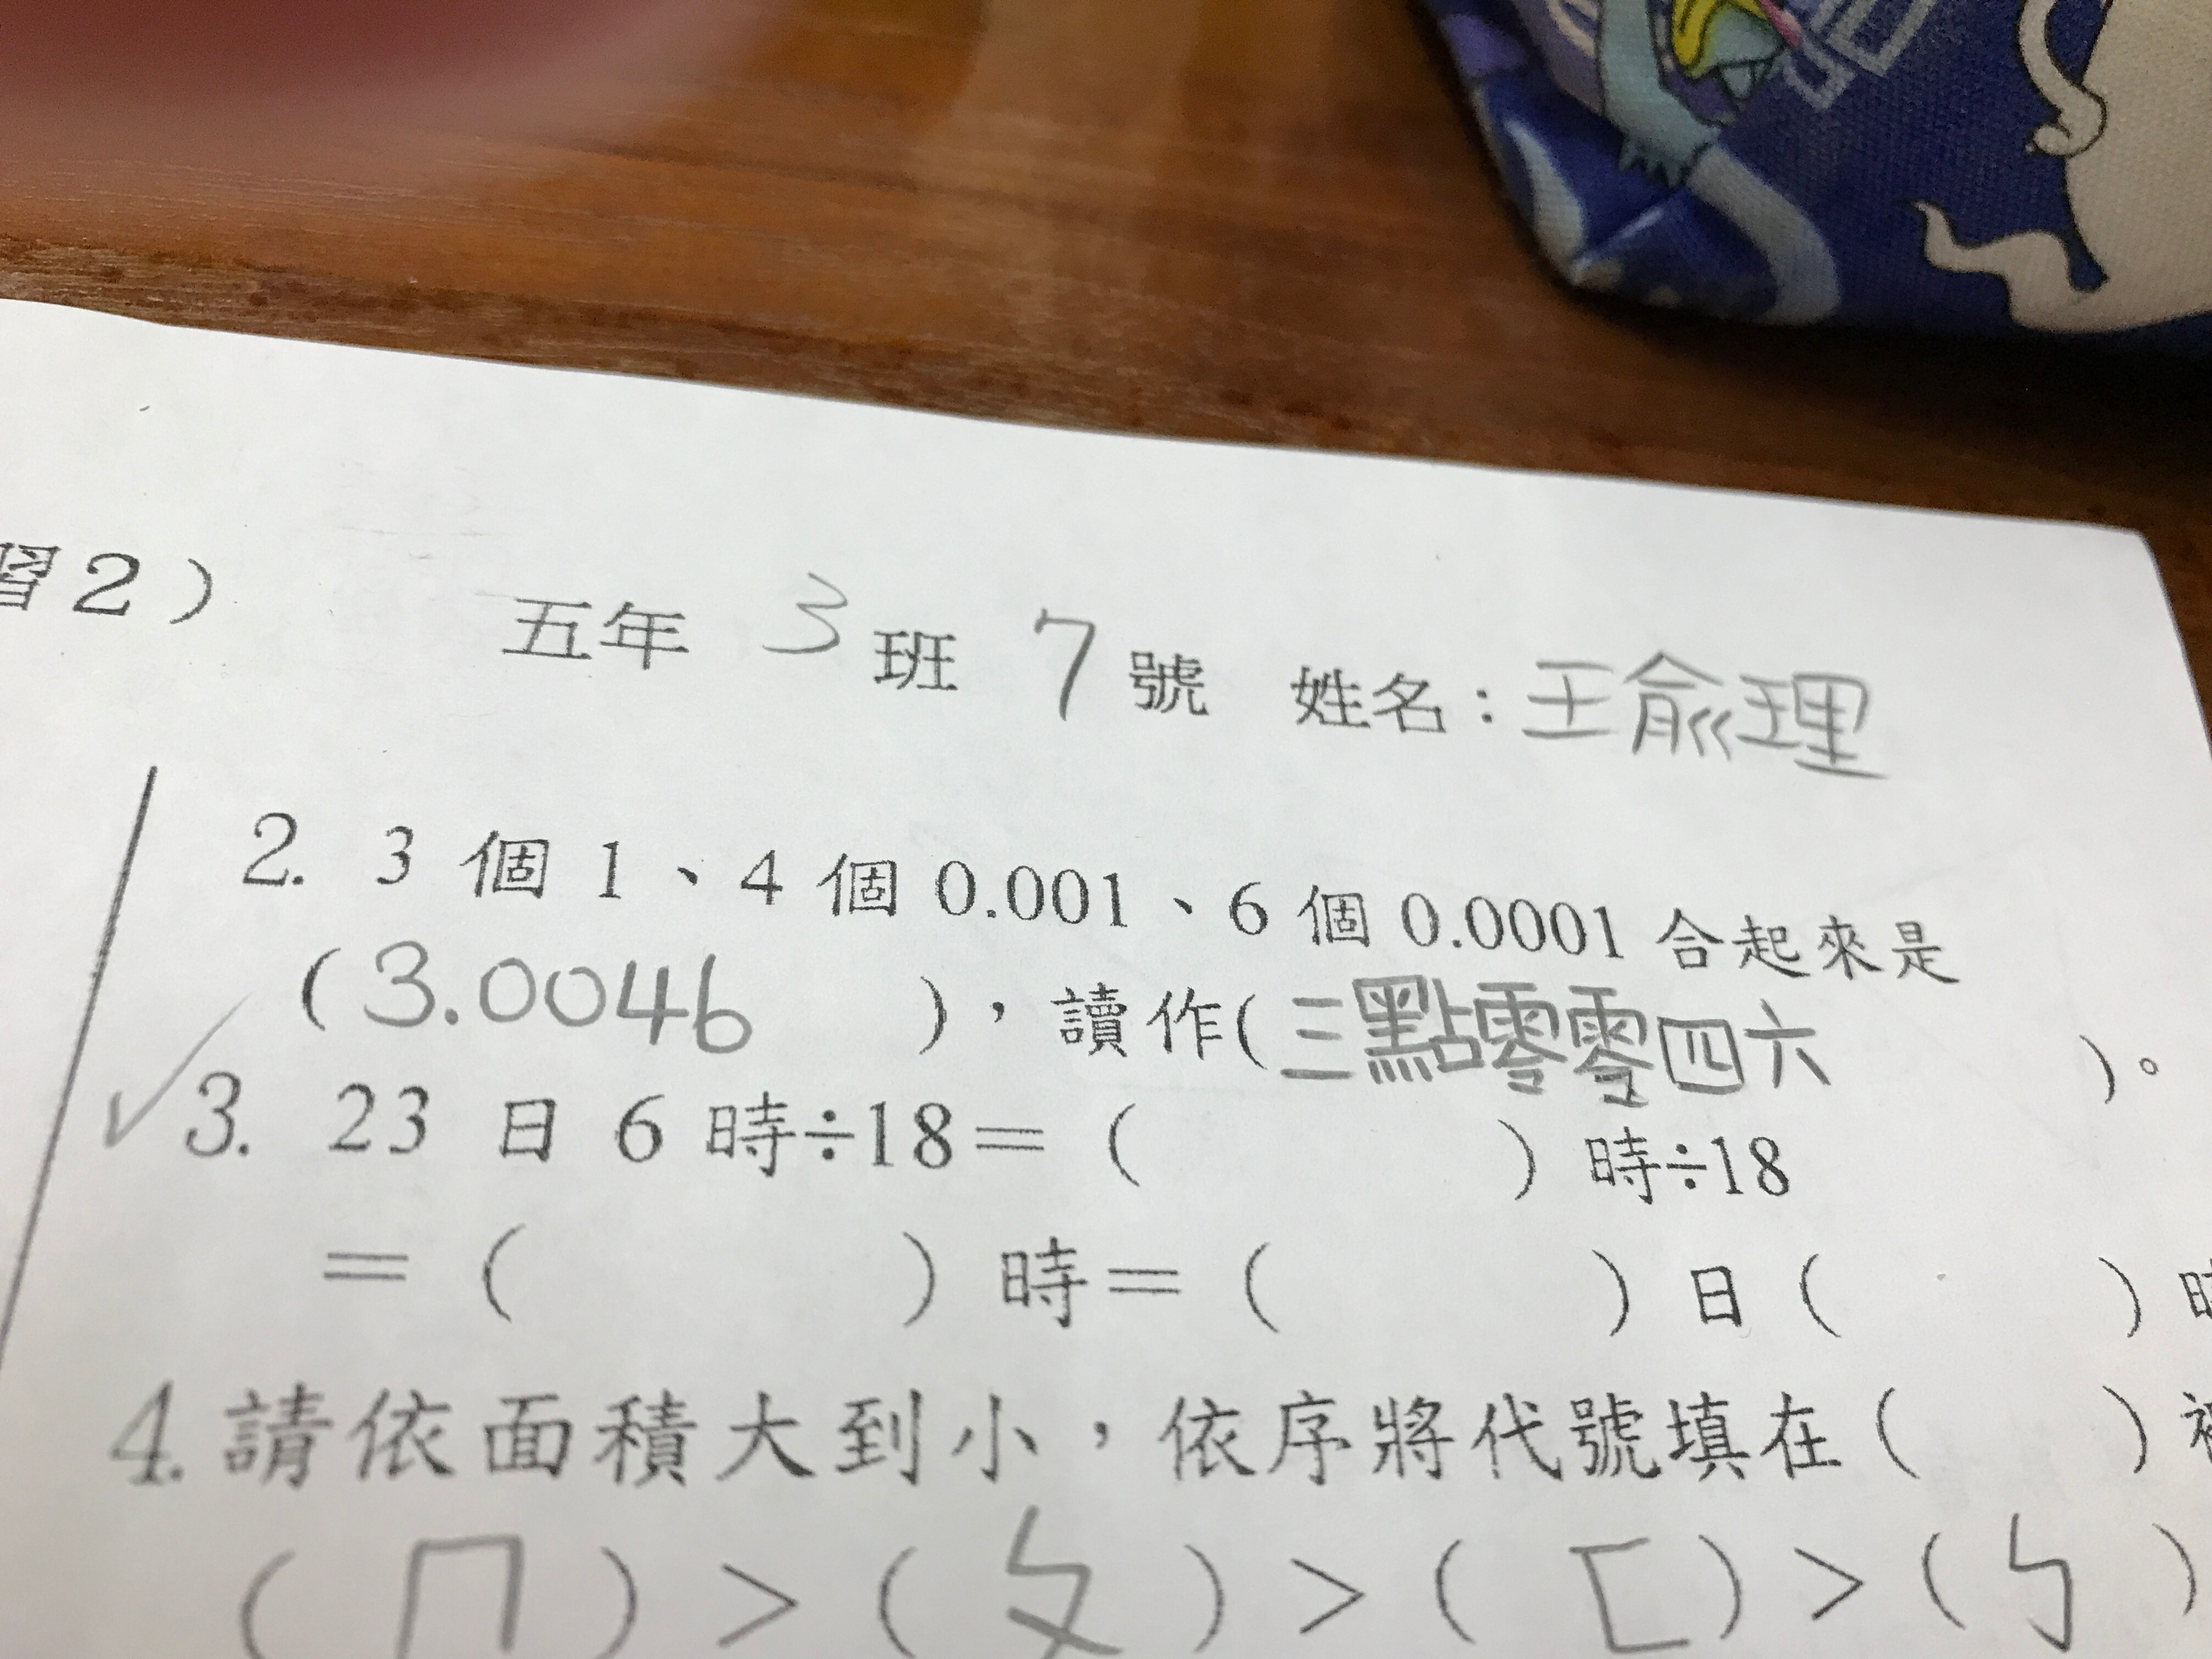 習2） 五年 3 班 7 號 姓名：王俞理
2. 3 個 1、4 個 0.001、6 個 0.0001 合起來是
(3.0046 )，讀作(三點零零四六 )。
3. 23 日 6 時÷18＝（ ）時÷18
＝（ ）時＝（ ）日（ ）時
4.請依面積大到小，依序將代號填在（ ）裡
（ㄇ）＞（ㄆ）＞（ㄈ）＞（ㄅ）